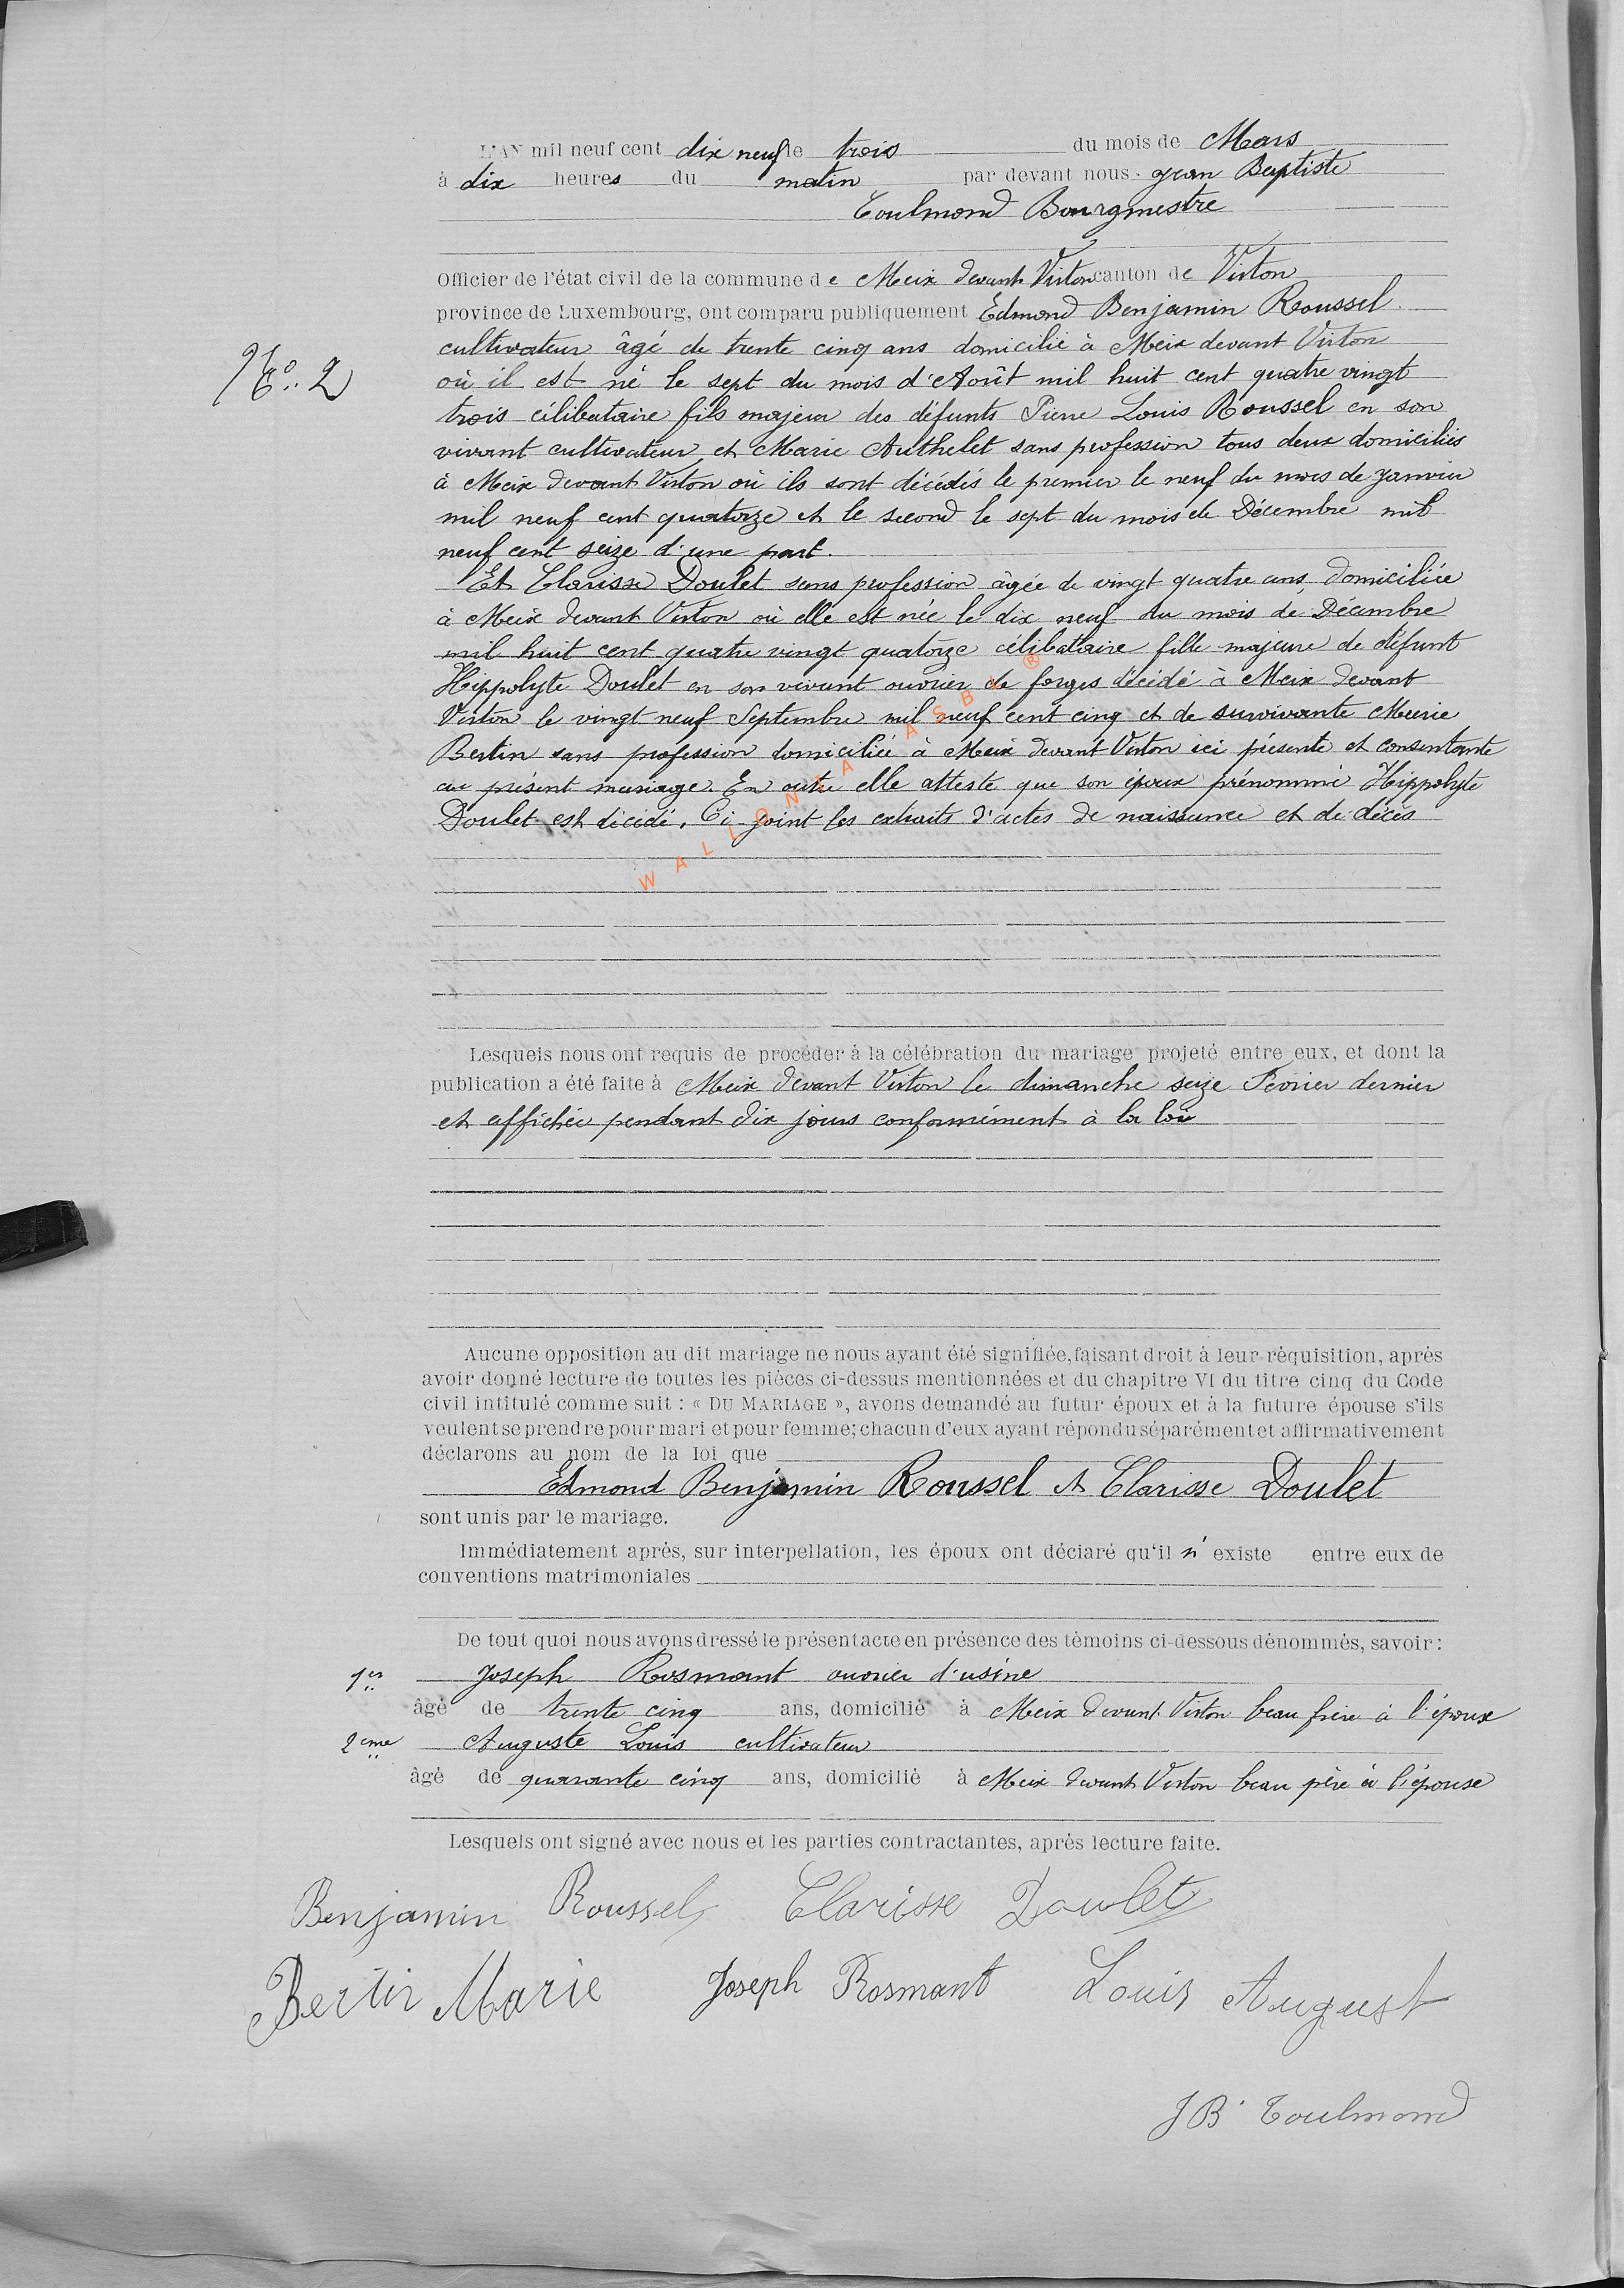 L'AN mil neuf cent dix neuf le trois du mois de Mars
à dix heures du matin par devant nous Jean Baptiste
Toulmond Bourgmestre
Officier de l'état civil de la commune de Meix devant Virton canton de Virton
province de Luxembourg, ont comparu publiquement Edmond Benjamin Roussel
cultivateur âgé de trente cinq ans domicilié à Meix devant Virton
N° 2
où il est né le sept du mois d'Août mil huit cent quatre vingt
trois célibataire fils majeur des défunts Pierre Louis Roussel en son
vivant cultivateur et Marie Authelet sans profession tous deux domiciliés
à Meix devant Virton où ils sont décédés le premier le neuf du mois de Janvier
mil neuf cent quatorze et le second le sept du mois de Décembre mil
neuf cent seize d'une part.
Et Clarisse Doulet sans profession âgée de vingt quatre ans, domiciliée
à Meix devant Virton où elle est née le dix neuf du mois de Décembre
mil huit cent quatre vingt quatorze célibataire fille majeure de défunt
Hippolyte Doulet en son vivant ouvrier de forges décédé à Meix devant
Virton le vingt neuf Septembre mil neuf cent cinq et de survivante Marie
Bertin sans profession domiciliée à Meix devant Virton ici présente et consentante
au présent mariage. En outre elle atteste que son époux prénommé Hippolyte
Doulet est décédé. Ci-joint les extraits d'actes de naissance et de décès
WALLONIA ASBL ®
Lesquels nous ont requis de procéder à la célébration du mariage projeté entre eux, et dont la
publication a été faite à Meix devant Virton le dimanche seize Février dernier
et affichée pendant dix jours conformément à la loi
Aucune opposition au dit mariage ne nous ayant été signifiée, faisant droit à leur réquisition, après
avoir donné lecture de toutes les pièces ci-dessus mentionnées et du chapitre VI du titre cinq du Code
civil intitulé comme suit : « DU MARIAGE », avons demandé au futur époux et à la future épouse s'ils
veulent se prendre pour mari et pour femme; chacun d'eux ayant répondu séparément et affirmativement
déclarons au nom de la loi que
Edmond Benjamin Roussel et Clarisse Doulet
sont unis par le mariage.
Immédiatement après, sur interpellation, les époux ont déclaré qu'il n' existe entre eux de
conventions matrimoniales
De tout quoi nous avons dressé le présent acte en présence des témoins ci-dessous dénommés, savoir :
1er Joseph Rosmant ouvrier d'usine
âgé de trente cinq ans, domicilié à Meix devant Virton beau frère à l'époux
2eme Auguste Louis cultivateur
âgé de quarante cinq ans, domicilié à Meix devant Virton beau père à l'épouse
Lesquels ont signé avec nous et les parties contractantes, après lecture faite.
Benjamin Roussel Clarisse Doulet
Bertin Marie Joseph Rosmant Louis August
J B Toulmond